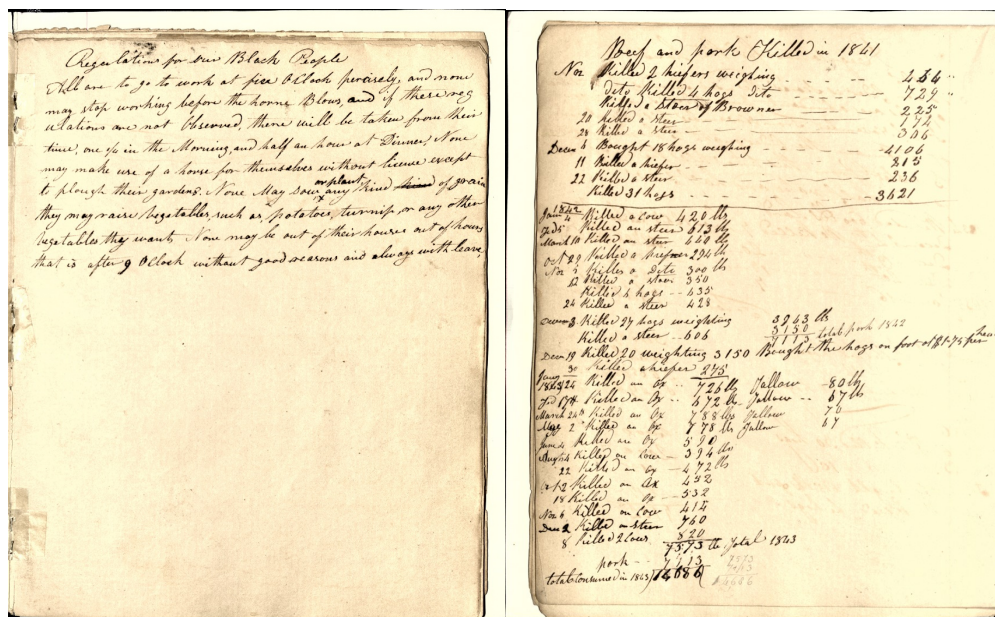 Regulations for our Black People
All are to go to work at five OClock percisely, and none
may stop working before the horne Blows, and if these reg
ulations are not Observed, there will be taken from their
time, one in the Morning, and half an hour at Dinner, None
may make use of a horse for themselves without licence except
to plough their gardens. None May Sow or plant any kind of grain
they may raise vegetables, such as, potatoes, turnip, or any other
vegetables they want. None may be out of their houses out of hours
that is after 9 OClock without good reasons and always with leave,
Beef and pork Killed in 1841
Nov Killed 2 hiefers weighing 454 "
Dito Killed 4 hogs Dito 729 "
Killed a Steer of Browner 225
20 Killed a steer 172
28 Killed a steer 306
Decem 6 Bought 18 hogs weighing 4106
11 Killed a hiefer 315
22 Killed a steer 236
Killed 31 hogs 3621
1842
Jan 4 Killed a Cow 420 lb
Feb 5 Killed an steer 613 lb
March 10 Killed an steer 640 lb
Oct 29 Killed a hiefer 294 lb
Nov 5 Killed a Dito 300 lb
12 Killed a steer 350
Killed 4 hogs 435
24 Killed a steer 428
Decem 3 Killed 27 hogs weighting 3963 lb
Killed a steer 606 3150
7113 total pork 1842
Decm 19 Killed 20 weighting 3150 Bought the hogs on foot at per
30 Killed a hiefer 275
Jany 1843 24 Killed an Ox 726 lb Tallow 80 lb
Feb 17th Killed an Ox 672 lb Tallow 67 lb
March 24th Killed an Ox 788 lb Tallow 70
May 2 Killed an Ox 778 lb Tallow 67
June 4 Killed an Ox 590
Aug 14 Killed an Cow 394 lb
22 Killed an Ox 472 lb
Oct 2 Killed an Ox 452
18 Killed an Ox 532
Nov 6 Killed an Cow 414
Decm 2 Killed an steer 760
8 Killed 2 Cows 820
7573 lb Total 1843
pork 7113
total Consumed in 1843 14686
7573
7113
14686